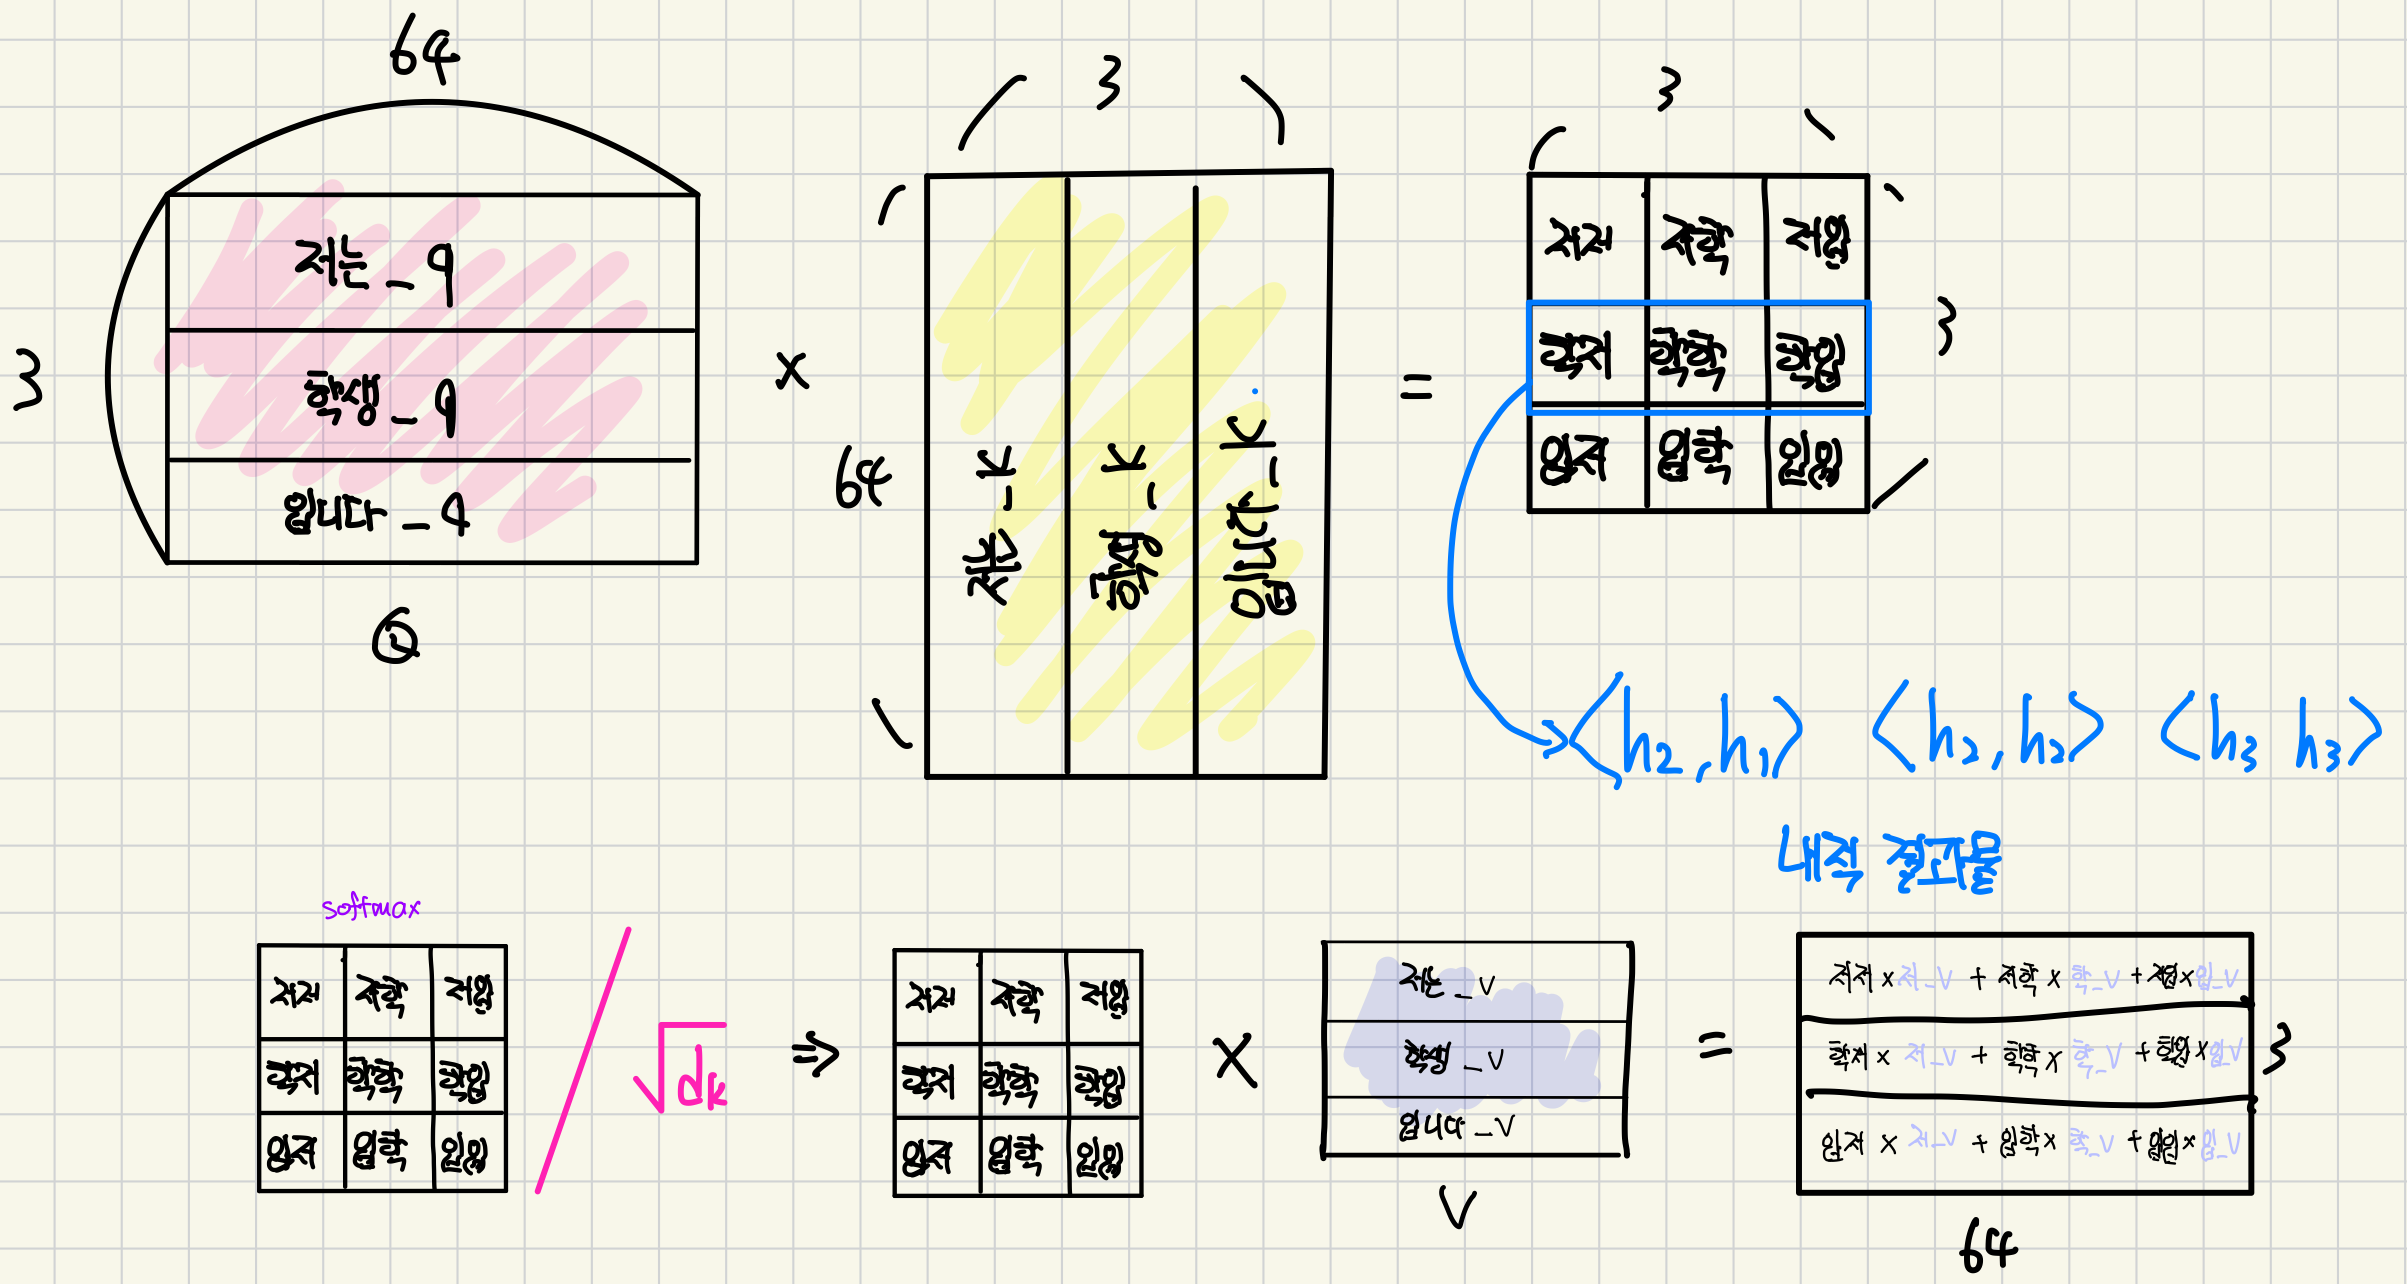 64
3
3
저는_q
학생_q
입니다_q
3
Q
×
64
저는_K
학생_K
입니다_K
=
저저 저학 저입
학저 학학 학입
입저 입학 입입
3
<h2, h1> <h2, h2> <h3 h3>
내적 결과물
softmax
저저 저학 저입
학저 학학 학입
입저 입학 입입
/ √dk
⇒
저저 저학 저입
학저 학학 학입
입저 입학 입입
×
저는_V
학생_V
입니다_V
V
=
저저 × 저_V + 저학 × 학_V + 저입 × 입_V
학저 × 저_V + 학학 × 학_V + 학입 × 입_V
입저 × 저_V + 입학 × 학_V + 입입 × 입_V
3
64